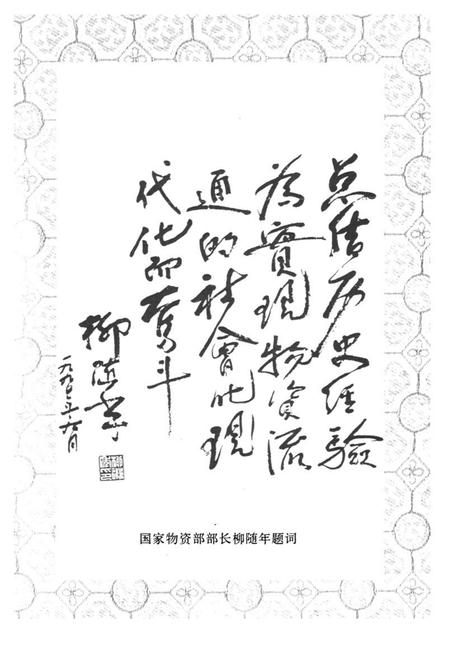 总结历史经验
为實现物资流
通的社會化现
代化而奮斗
柳随年
一九九〇年六月
国家物资部部长柳随年题词